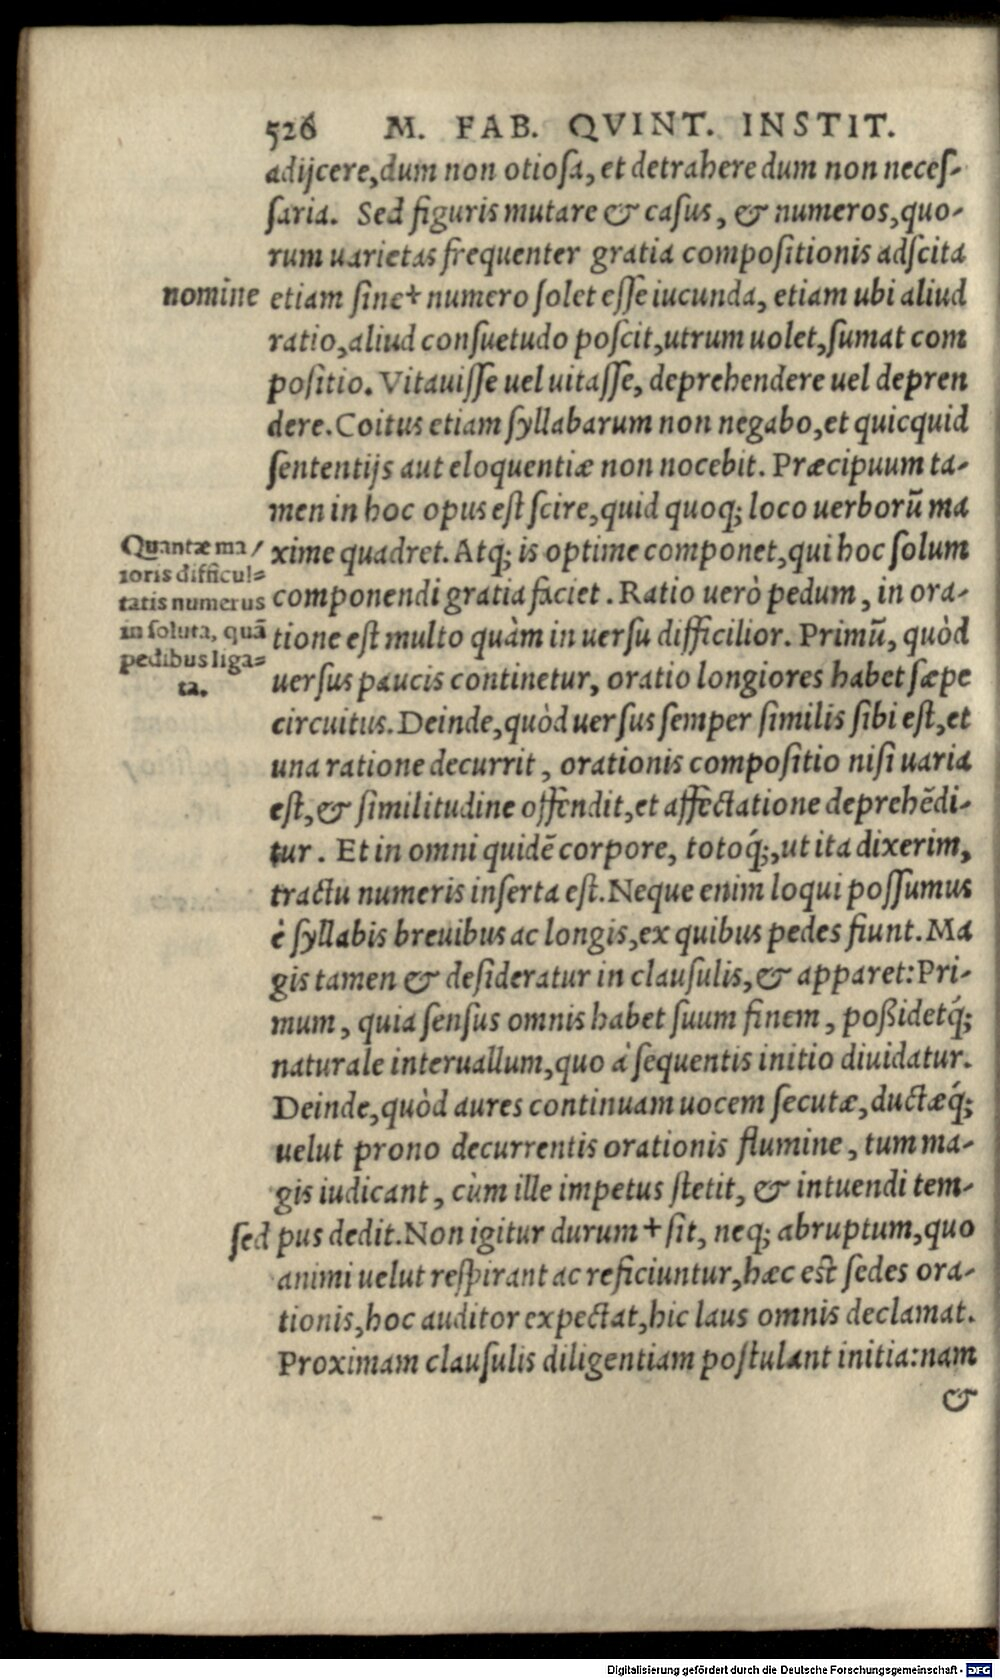 526 M. FAB. QVINT. INSTIT.
adijcere,dum non otiosa, et detrahere dum non neces-
saria. Sed figuris mutare & casus, & numeros,quo-
rum uarietas frequenter gratia compositionis adscita
nomine etiam sine+ numero solet esse iucunda, etiam ubi aliud
ratio,aliud consuetudo poscit,utrum uolet,sumat com
positio. Vitauisse uel uitasse, deprehendere uel depren
dere. Coitus etiam syllabarum non negabo,et quicquid
sententijs aut eloquentiæ non nocebit. Præcipuum ta-
men in hoc opus est scire,quid quoq; loco uerborū ma
xime quadret. Atq; is optime componet,qui hoc solum
componendi gratia faciet. Ratio uerò pedum, in ora-
tione est multo quàm in uersu difficilior. Primū, quòd
uersus paucis continetur, oratio longiores habet sæpe
circuitus. Deinde,quòd uersus semper similis sibi est,et
una ratione decurrit, orationis compositio nisi uaria
est,& similitudine offendit,et affectatione deprehēdi-
tur. Et in omni quidē corpore, totoq́;,ut ita dixerim,
tractu numeris inserta est. Neque enim loqui possumus
è syllabis breuibus ac longis,ex quibus pedes fiunt. Ma
gis tamen & desideratur in clausulis,& apparet: Pri-
mum, quia sensus omnis habet suum finem, poßidetq́;
naturale interuallum,quo à sequentis initio diuidatur.
Deinde,quòd aures continuam uocem secutæ,ductæq́;
uelut prono decurrentis orationis flumine, tum ma-
gis iudicant, cùm ille impetus stetit, & intuendi tem-
sed pus dedit. Non igitur durum + sit, neq; abruptum,quo
animi uelut respirant ac reficiuntur,hæc est sedes ora-
tionis,hoc auditor expectat,hic laus omnis declamat.
Proximam clausulis diligentiam postulant initia:nam
&
Quantæ ma/
ioris difficul=
tatis numerus
in soluta, quā
pedibus liga=
ta.
Digitalisierung gefördert durch die Deutsche Forschungsgemeinschaft - DFG